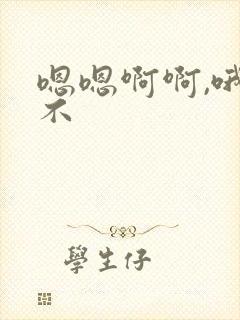 嗯嗯啊啊,哦
不
學生仔